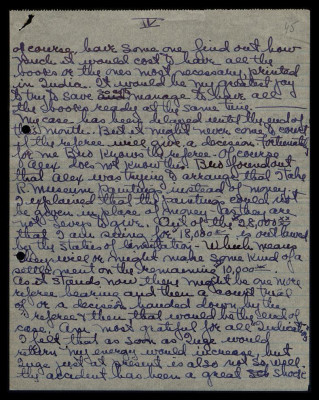 IV
45
of course, have some one find out how
much it would cost to have all the
books or the ones most necessary printed
in India. It would be my greatest joy
to try to save and manage to have all
the books ready at the same time.
My case has been delayed until the end of
this month. But it might never come to court
if the referee will give a decision. Fortunately
for me Bru knows the referee. Of course
Alex does not know this. Bru found out
that Alex was trying to arrange that I take
R. Museum Paintings instead of money.
I explained that the paintings could not
be given in place of money as they are
not sever. Out of the 28,000
that I am asking for 18,000 is outlawed
by the States of limitation - Which means
they will or might make some kind of a
settlement on the remaining 10,000
As it stands now, there might be one more
referee hearing and then a court trial
of or a decision handed down by the
referee & then that would be the end of
case. Am most grateful for all Indications
I felt that as soon as Inge would
return my energy would increase, but
Inge just at present is also not so well.
the accident has been a great shock